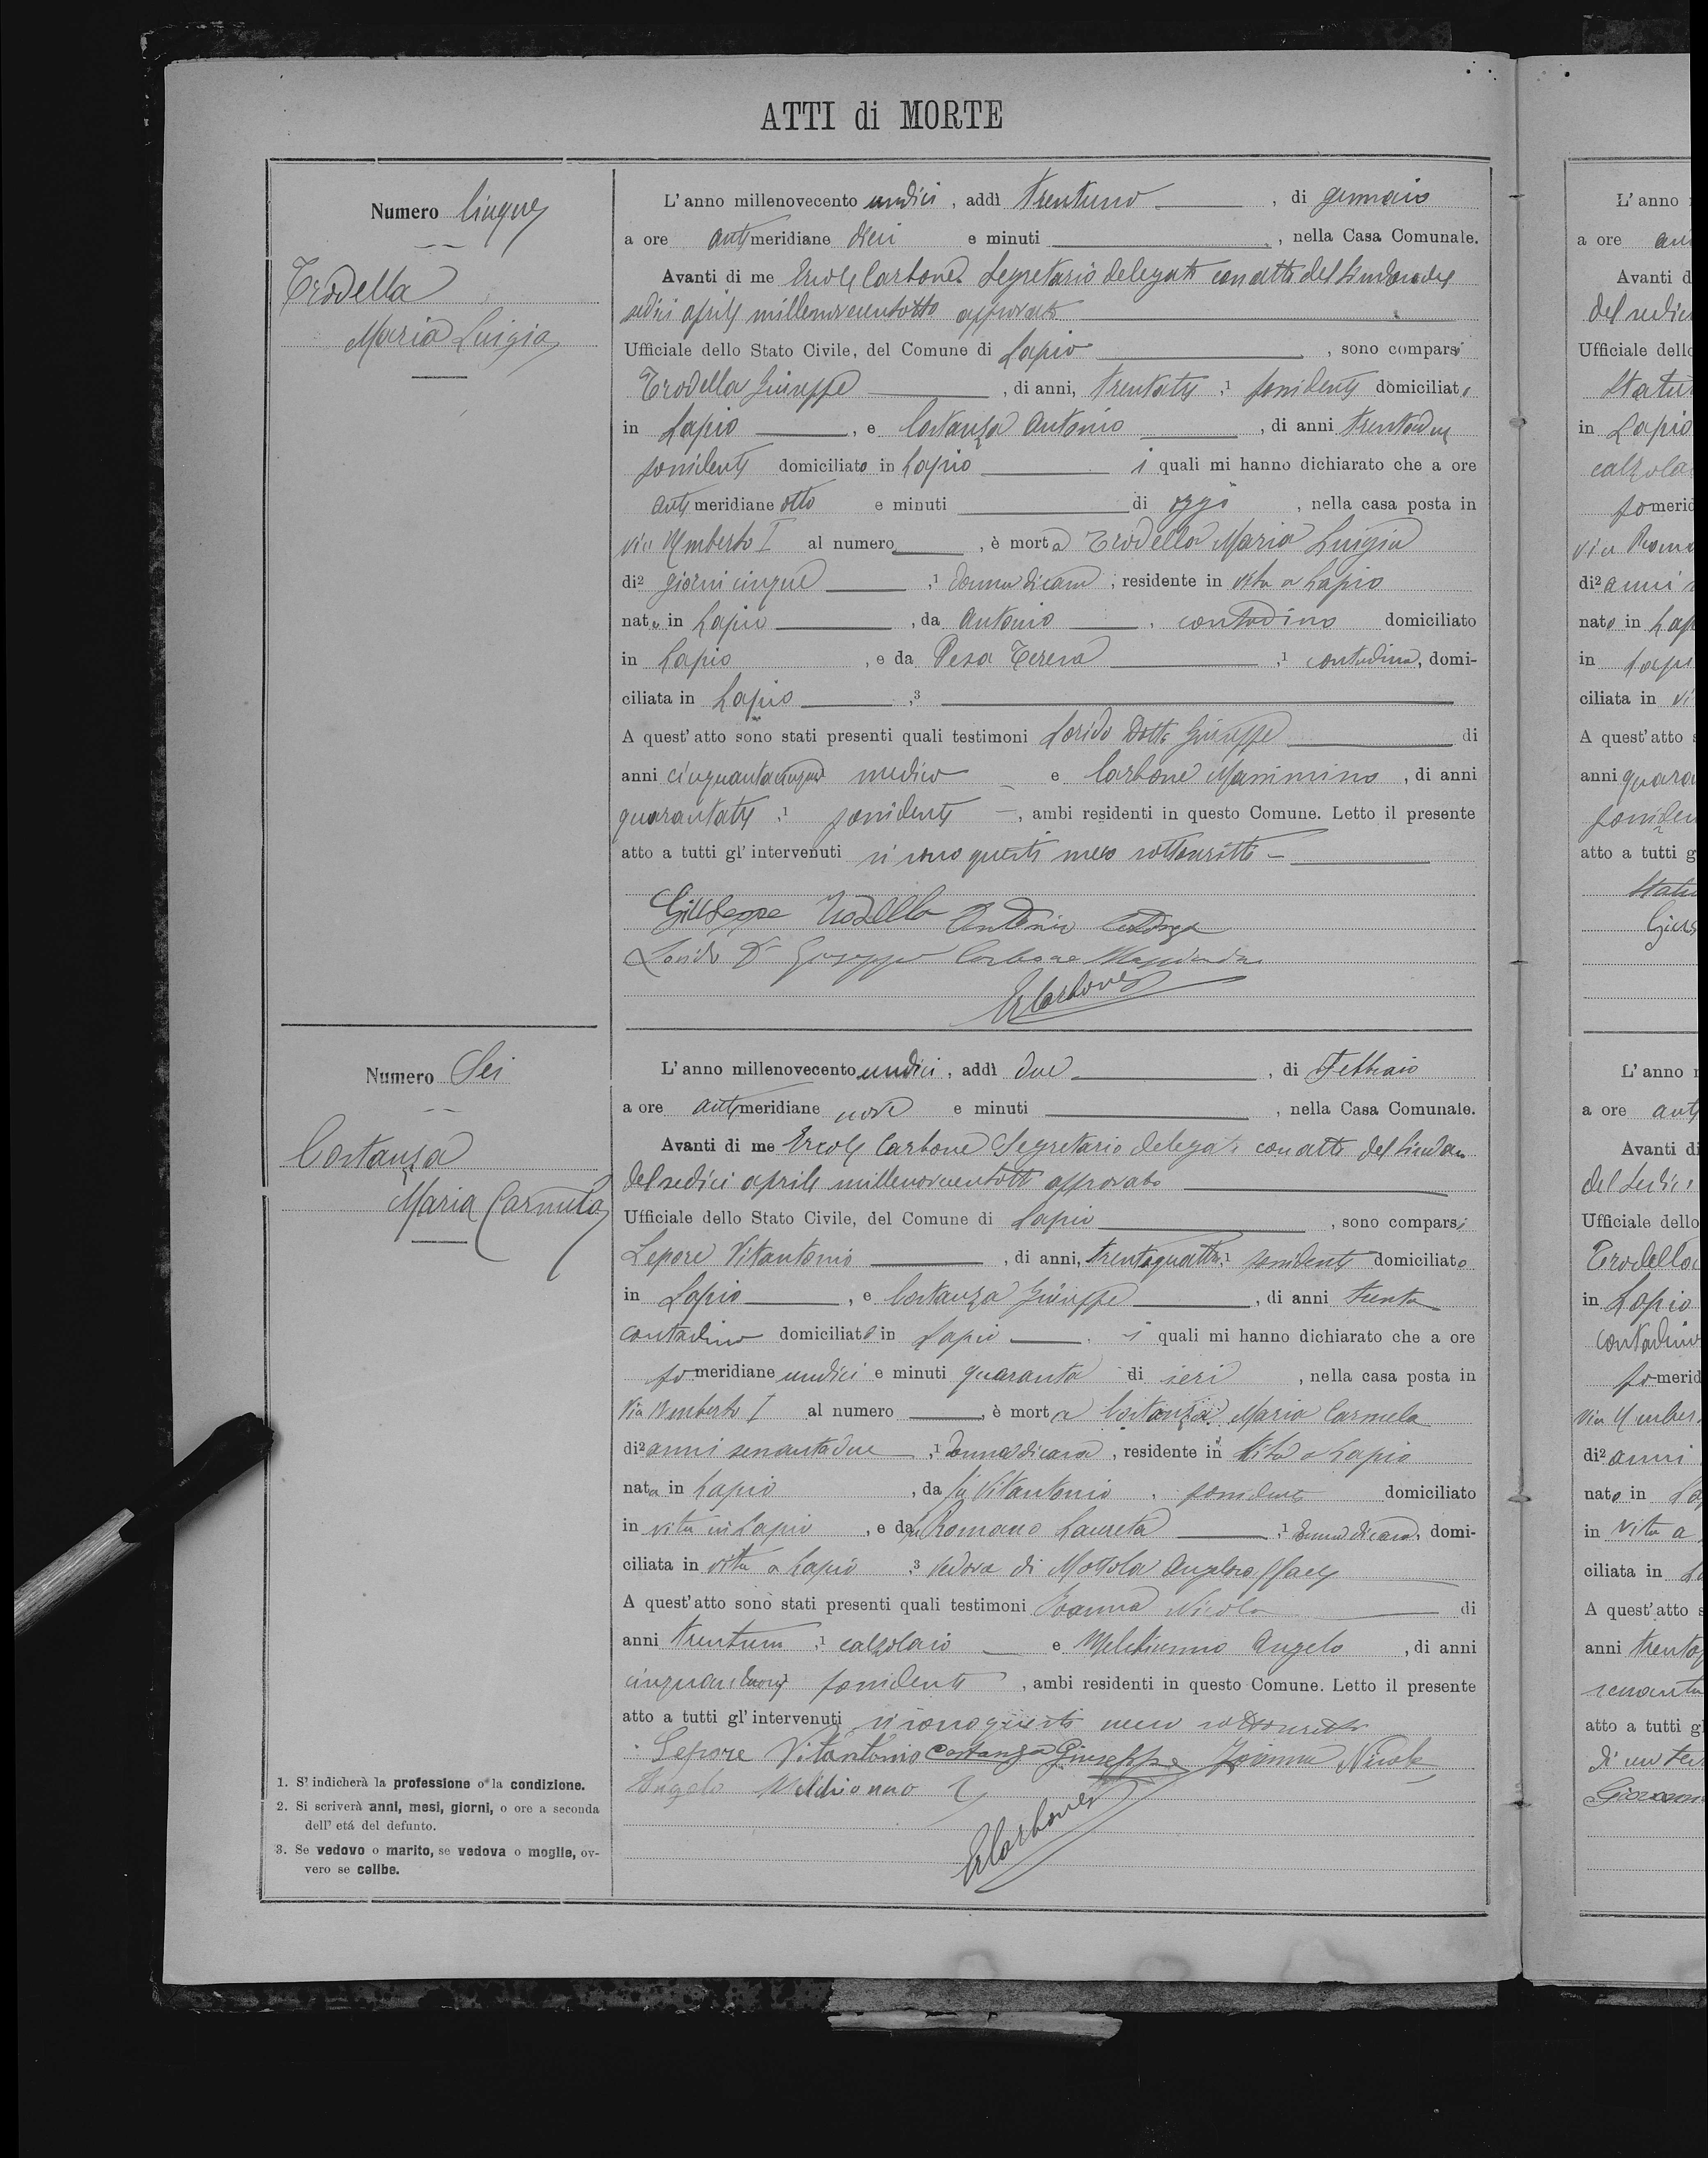 ATTI di MORTE
Numero Cinque
Trodella
Maria Luigia
L'anno millenovecento undici, addì trentuno, di gennaio
a ore antimeridiane dieci e minuti, nella Casa Comunale.
Avanti di me Ercole Carbone Segretario delegato con atto del Sindaco del
sedici aprile millenovecentotto approvato
Ufficiale dello Stato Civile, del Comune di Lapio, sono comparsi
Trodella Giuseppe, di anni, trentatre, 1 possidente domiciliato
in Lapio, e Costanza Antonio, di anni trentadue
possidente domiciliato in Lapio i quali mi hanno dichiarato che a ore
antimeridiane otto e minuti di oggi, nella casa posta in
via Umberto I al numero, è morta Trodella Maria Luigia
di2 giorni cinque, 1 donna di casa, residente in vita a Lapio
nata in Lapio, da Antonio, contadino domiciliato
in Lapio, e da Pesa Teresa, 1 contadina, domi-
ciliata in Lapio, 3
A quest'atto sono stati presenti quali testimoni Dott. Giuseppe di
anni cinquantacinque medico e Carbone Massimino, di anni
quarantatre, 1 possidente, ambi residenti in questo Comune. Letto il presente
atto a tutti gl'intervenuti si sono questi meco sottoscritti
Giuseppe Trodella Antonio Costanza
Dr Giuseppe Carbone Massimino
E Carbone
Numero Sei
Costanza
Maria Carmela
L'anno millenovecento undici, addì due, di Febbraio
a ore antimeridiane nove e minuti, nella Casa Comunale.
Avanti di me Ercole Carbone Segretario delegato con atto del Sindaco
del sedici aprile millenovecentotto approvato
Ufficiale dello Stato Civile, del Comune di Lapio, sono comparsi
Lepore Vitantonio, di anni, trentaquattro, 1 possidente domiciliato
in Lapio, e Costanza Giuseppe, di anni trenta
contadino domiciliato in Lapio, i quali mi hanno dichiarato che a ore
pomeridiane undici e minuti quaranta di ieri, nella casa posta in
Via Umberto I al numero, è morta Costanza Maria Carmela
di2 anni sessantadue, 1 donna di casa, residente in Vita a Lapio
nata in Lapio, da fu Vitantonio, possidente domiciliato
in vita in Lapio, e da fu Romano Laureta, 1 donna di casa, domi-
ciliata in vita a Lapio, 3 vedova di Mottola Angelo Raffaele
A quest'atto sono stati presenti quali testimoni Nicola di
anni trentuno, 1 calzolaio e Melchionno Angelo, di anni
possidente, ambi residenti in questo Comune. Letto il presente
atto a tutti gl'intervenuti si sono questi meco sottoscritti
Lepore Vitantonio Costanza Giuseppe Nicola
Angelo Melchionno
E Carbone
1. S'indicherà la professione o la condizione.
2. Si scriverà anni, mesi, giorni, o ore a seconda
dell'etá del defunto.
3. Se vedovo o marito, se vedova o moglie, ov-
vero se celibe.